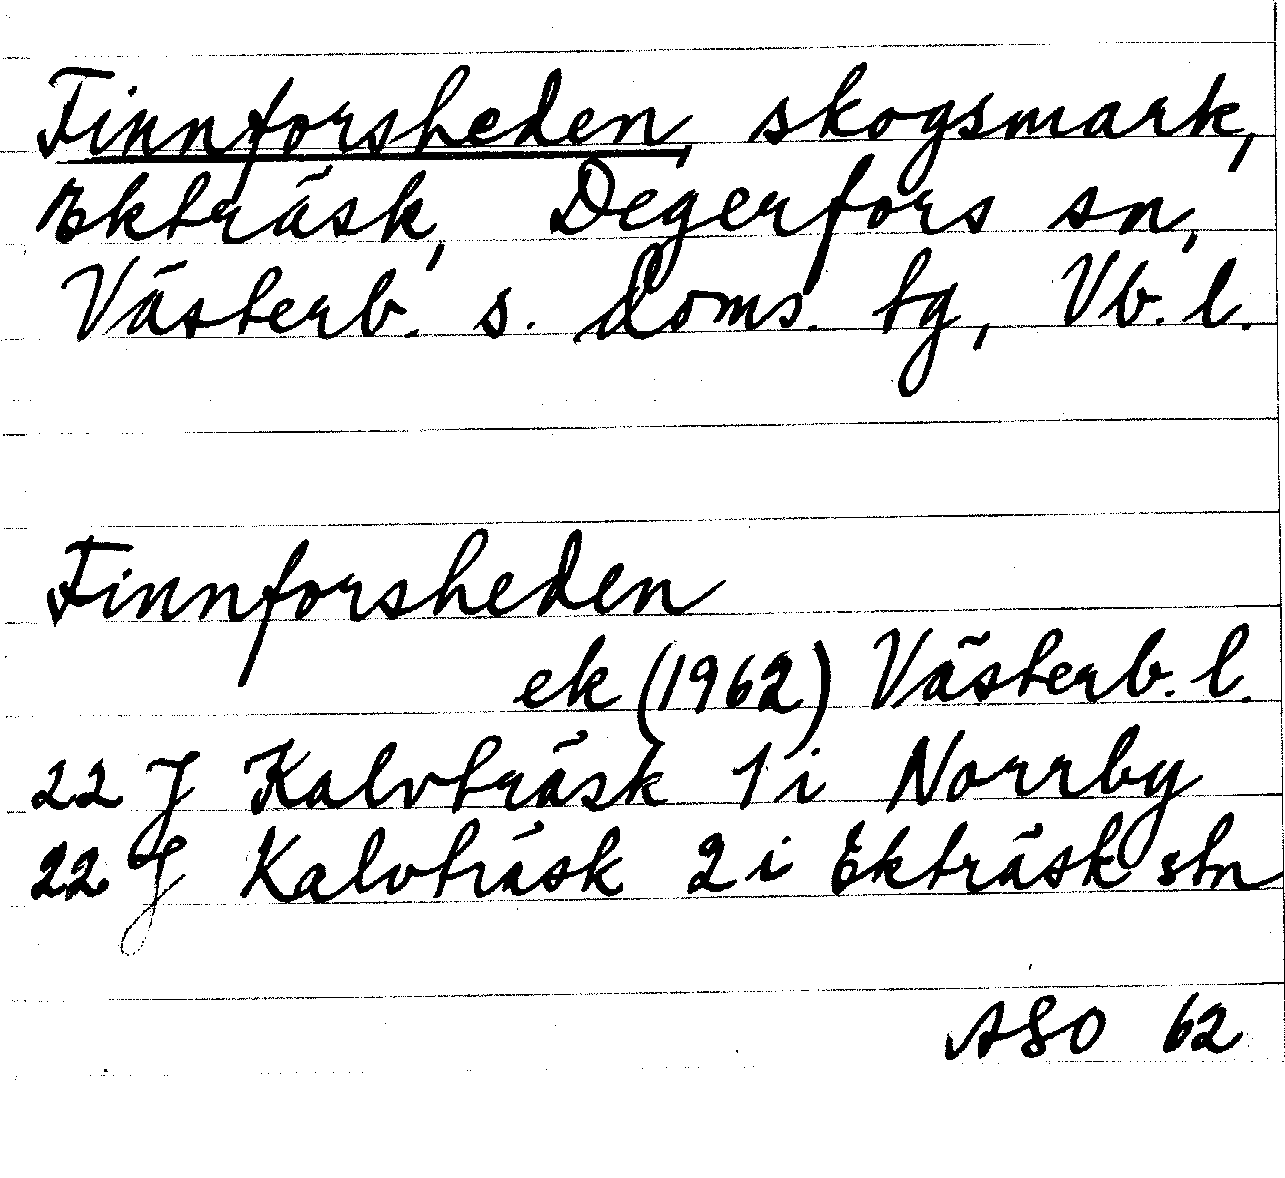 Finnforsheden, skogsmark,
Ekträsk, Degerfors sn,
Västerb. s. doms. tg, Vb. l.
Finnforsheden
ek (1962) Västerb. l.
22 J Kalvträsk 1 i Norrby
22 J Kalvträsk 2 i Ekträsk stn
ASO 62